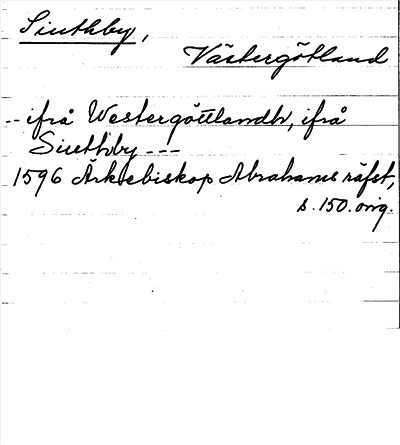 Siuthby,
Västergötland
-- ifrå Westergöttlandh, ifrå
Siuthby ---
1596 Ärkebiskop Abrahams räfst,
s. 150. orig.